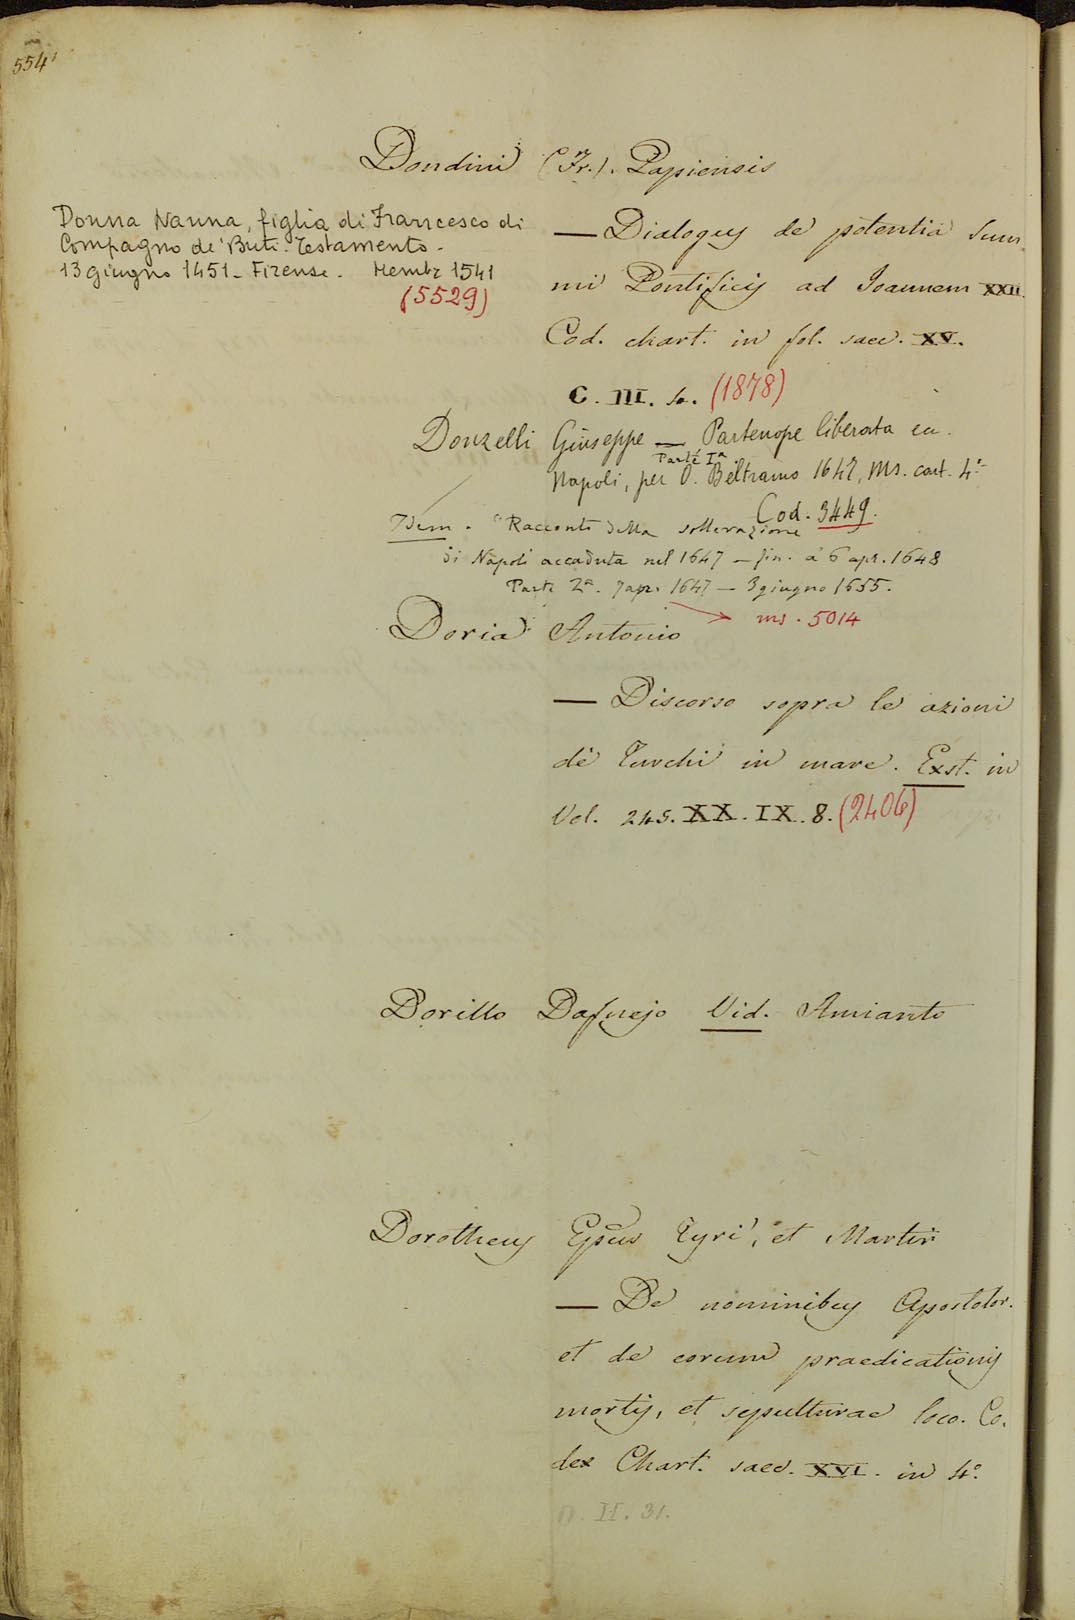 554
Dondini (Fr.). Papiensis
Donna Nanna, figlia di Francesco di
Compagno de' Buti. Testamento.
13 giugno 1451 - Firenze. Membr 1541
(5529)
— Dialogus de potentia Sum
mi Pontificis ad Joannem XXII.
Cod. chart. in fol. saec. XV.
C. III. 4. (1878)
Donzelli Giuseppe — Partenope liberata ec.
Parte Iª
Napoli, per O. Beltramo 1647, Ms. cart. 4°
Cod. 3449.
Idem. "Racconti della sollevazione
di Napoli accaduta nel 1647 — fin. a' 6 apr. 1648
Parte 2ª. 7 apr. 1647 — 3 giugno 1655.
ms. 5014
Doria Antonio
— Discorso sopra le azioni
de' Turchi in mare. Exst. in
Vol. 245. XX. IX. 8. (2406)
Dorillo Dafnejo Vid. Amianto
Dorotheus Epus Tyri, et Martir
— De nominibus Apostolor.
et de eorum praedicationis
mortis, et sepulturae loco. Co.
dex Chart. saec. XVI. in 4°.
II. 31.